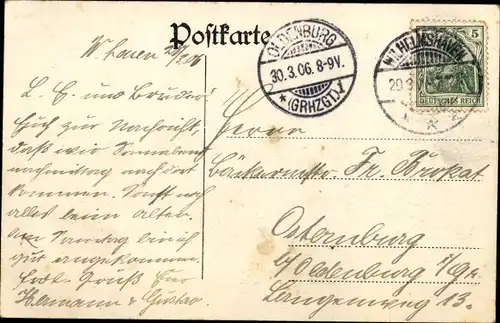 Postkarte
W. haven 29/3 06
L. E. und Bruder!
Euch zur Nachricht,
daß wir Sonnabend
nachmittag nach dort
kommen. Sonst noch
alles beim alten.
Am Sonntag bin ich
gut angekommen.
Gruß Euer
Hermann & Gustav
OLDENBURG
30.3.06. 8-9V.
* (GRHZGT.) 1
WILHELMSHAVEN
29.3
5
DEUTSCHES REICH
Herrn
Bäckermstr. Fr. Brokat
Osternburg
b/Oldenburg i/Gr.
Langenweg 13.